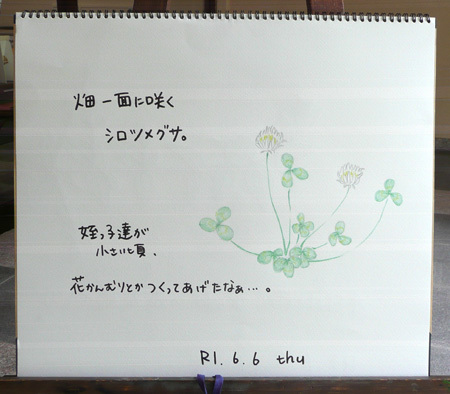 畑一面に咲く
シロツメグサ。
姪っ子達が
小さい頃、
花かんむりとかつくってあげたなぁ…。
R1.6.6 thu